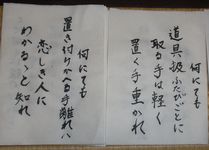 何にても
道具扱ふたびごとに
取る手は軽く
置く手重かれ
何にても
置き付けかへる手離れハ
恋しき人に
わかるゝと知れ